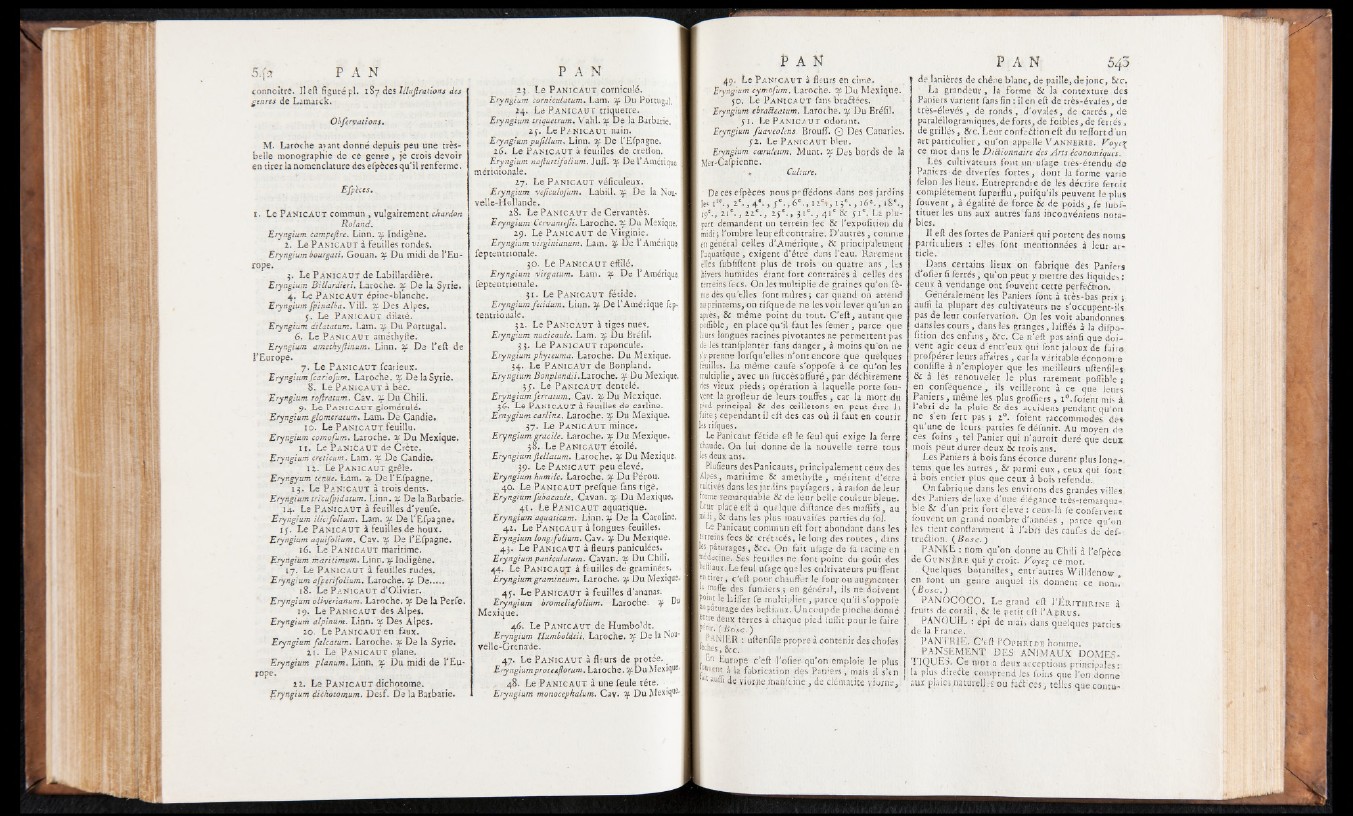 PAN
connoître. Il est figuré pl. 187 des Illustrations des
genres de Lamarck.
Observations.
M. Laroche ayant donné depuis peu une très-
belle monographie de ce genre, je crois devoir
en tirer la nomenclature des espèces qu'il renferme.
Espèces.
1. Le PANICAUT commun, vulgairement chardon
Roland.
Eryngium campestre. Linn. ♃ Indigène.
2. Le PANICAUT à feuilles rondes.
Eryngium bourgati. Gouan. ♃ Du midi de l'Eu-
rope.
3. Le PANICAUT de Labillardière.
Eryngium Billardieri. Laroche. ♃ De la Syrie.
4. Le PANICAUT épine-blanche.
Eryngium spinalba. Vill. ♃ Des Alpes.
5. Le PANICAUT dilaté.
Eryngium dilatatum. Lam. ♃ Du Portugal.
6. Le PANICAUT améthyste.
Eryngium amethystinum. Linn. ♃ De l'est de
l'Europe.
7. Le PANICAUT scarieux.
Eryngium scariosum. Laroche. ♃ De la Syrie.
8. Le PANICAUT à bec.
Eryngium rostratum. Cav. ♃ Du Chili.
9. Le PANICAUT glomérulé.
Eryngium glomeratum. Lam. De Candie.
10. Le PANICAUT feuillu.
Eryngium comosum. Laroche. ♃ Du Mexique.
11. Le PANICAUT de Crète.
Eryngium creticum. Lam. ♃ De Candie.
12. Le PANICAUT grêle.
Eryngyum tenue. Lam. ♃ De l'Espagne.
13. Le PANICAUT à trois dents.
Eryngium tricuspidatum. Linn. ♃ De la Barbarie.
14. Le PANICAUT à feuilles d'yeuse.
Eryngium ilicifolium. Lam. ♃ De l'Espagne.
15. Le PANICAUT à feuilles de houx.
Eryngium aquifolium. Cav. ♃ De l'Espagne.
16. Le PANICAUT maritime.
Eryngium maritimum. Linn. ♃ Indigène.
17. Le PANICAUT à feuilles rudes.
Eryngium asperifolium. Laroche. ♃ De.....
18. Le PANICAUT d'Olivier.
Eryngium oliverianum. Laroche. ♃ De la Perse.
19. Le PANICAUT des Alpes.
Eryngium alpinum. Linn. ♃ Des Alpes.
20. Le PANICAUT en faux.
Eryngium falcatum. Laroche. ♃ De la Syrie.
21. Le PANICAUT plane.
Eryngium planum. Linn. ♃ Du midi de l'Eu-
rope.
22. Le PANICAUT dichotome.
Eryngium dichotomum. Desf. De la Barbarie.
PAN
23. Le PANICAUT corniculé.
Eryngium corniculatum. Lam. ♃ Du Portugal.
24. Le PANICAUT triquetre.
Eryngium triquetrum. Vahl. ♃ De la Barbarie.
25. Le PANICAUT nain.
Eryngium pusillum. Linn. ♃ De l'Espagne.
26. Le PANICAUT à feuilles de cresson.
Eryngium nasturtifolium. Juss. ♃ De l'Amérique
méridionale.
27. Le PANICAUT vésiculeux.
Eryngium vesiculosum. Labill. ♃ De la Nou-
velle-Hollande.
28. Le PANICAUT de Cervantès.
Eryngium Cervantesii. Laroche. ♃ Du Mexique.
29. Le PANICAUT de Virginie.
Eryngium virginianum. Lam. ♃ De l'Amérique
septentrionale.
30. Le PANICAUT effilé.
Eryngium virgatum. Lam. ♃ De l'Amérique
septentrionale.
31. Le PANICAUT fétide.
Eryngium foetidum. Linn. ♃ De l'Amérique sep-
tentrionale.
32. Le PANICAUT à tiges nues.
Eryngium nudicaule. Lam. ♃ Du Brésil.
33. Le PANICAUT raponcule.
Eryngium physeuma. Laroche. Du Mexique.
34. Le PANICAUT de Bonpland.
Eryngium Bonplandii. Laroche. ♃ Du Mexique.
35. Le PANICAUT dentelé.
Eryngium serratum. Cav. ♃ Du Mexique.
36. Le PANICAUT à feuilles de carline.
Ernygium carlinæ. Laroche. ♃ Du Mexique.
37. Le PANICAUT mince.
Eryngium gracile. Laroche. ♃ Du Mexique.
38. Le PANICAUT étoilé.
Eryngium stellatum. Laroche. ♃ Du Mexique.
39. Le PANICAUT peu élevé.
Eryngium humile. Laroche. ♃ Du Pérou.
40. Le PANICAUT presque sans tige.
Eryngium subacaule. Cavan. ♃ Du Mexique.
41. Le PANICAUT aquatique.
Eryngium aquaticum. Linn. ♃ De la Caroline.
42. Le PANICAUT à longues feuilles.
Eryngium longifolium. Cav. ♃ Du Mexique.
43. Le PANICAUT à fleurs paniculées.
Eryngium paniculatum. Cavan. ♃ Du Chili.
44. Le PANICAUT à feuilles de graminées.
Eryngium gramineum. Laroche. ♃ Du Mexique.
45. Le PANICAUT à feuilles d'ananas.
Eryngium bromeliæfolium. Laroche. ♃ Du
Mexique.
46. Le PANICAUT de Humboldt.
Eryngium Humboldtii. Laroche. ♃ De la Nou-
velle-Grenade.
47. Le PANICAUT à fleurs de protée.
Eryngium proteæflorum. Laroche. ♃ Du Mexique.
48. Le PANICAUT à une seule tête.
Eryngium monocephalum. Cav. ♃ Du Mexique.
PAN
49. Le PANICAUT à fleurs en cime.
Eryngium cymosum. Laroche. ♃ Du Mexique.
50. Le PANICAUT sans bractées.
Eryngium ebracteatum. Laroche. ♃ Du Brésil.
51. Le PANICAUT odorant.
Eryngium suaveolens. Brouss. ⊙ Des Canaries.
52. Le PANICAUT bleu.
Eryngium cœruleum. Munt. ♃ Des bords de la
Mer-Caspienne.
Culture.
De ces espèces nous possédons dans nos jardins
les 1re., 2e., 4e., 5e., 6e., 12e., 13e., 16e., 18e.,
19e., 21e., 22e., 25e., 31e., 41e. & 51e. La plu-
part demandent un terrein sec & l'exposition du
midi; l'ombre leur est contraire. D'autres, comme
en général celles d'Amérique, & principalement
l'aquatique, exigent d'être dans l'eau. Rarement
elles subsistent plus de trois ou quatre ans, les
hivers humides étant fort contraires à celles des
terreins secs. On les multiplie de graines qu'on sè-
me dès qu'elles sont mûres; car quand on attend
au printems, on risque de ne les voir lever qu'un an
après, & même point du tout. C'est, autant que
possible, en place qu'il faut les semer, parce que
leurs longues racines pivotantes ne permettent pas
de les transplanter sans danger, à moins qu'on ne
s'y prenne lorsqu'elles n'ont encore que quelques
feuilles. La même cause s'oppose à ce qu'on les
multiplie, avec un succès assuré, par déchirement
des vieux pieds; opération à laquelle porte sou-
vent la grosseur de leurs touffes, car la mort du
pied principal & des œilletons en peut être la
suite; cependant il est des cas où il faut en courir
les risques.
Le Panicaut fétide est le seul qui exige la serre
chaude. On lui donne de la nouvelle terre tous
les deux ans.
Plusieurs des Panicauts, principalement ceux des
Alpes, maritime & améthyste, méritent d'être
cultivés dans les jardins paysagers, à raison de leur
forme remarquable & de leur belle couleur bleue.
Leur place est à quelque distance des massifs, au
midi, & dans les plus mauvaises parties du sol.
Le Panicaut commun est fort abondant dans les
terreins secs & crétacés, le long des routes, dans
les pâturages, &c. On fait usage de sa racine en
médecine. Ses feuilles ne sont point du goût des
bestiaux. Le seul usage que les cultivateurs puissent
en tirer, c'est pour chauffer le four ou augmenter
la masse des fumiers; en général, ils ne doivent
point le laisser se multiplier, parce qu'il s'oppose
au pâturage des bestiaux. Un coup de pioche donné
entre deux terres à chaque pied suffit pour le faire
périr. (Bosc.)
PANIER : ustensile propre à contenir des choses
sèches, &c.
En Europe c'est l'osier qu'on emploie le plus
souvent à la fabrication des Paniers, mais il s'en
fait aussi de viorne mancienne, de clématite viorne,
PAN 543
de lanières de chêne blanc, de paille, de jonc, &c.
La grandeur, la forme & la contexture des
Paniers varient sans fin : il en est de très-évasés, de
très-élevés, de ronds, d'ovales, de carrés, de
parallélogramiques, de forts, de foibles, de serrés,
de grillés, &c. Leur confection est du ressort d'un
art particulier, qu'on appelle VANNERIE. Voyez
ce mot dans le Dictionnaire des Arts économiques.
Les cultivateurs font un usage très-étendu de
Paniers de diverses sortes, dont la forme varie
selon les lieux. Entreprendre de les décrire seroit
complétement superflu, puisqu'ils peuvent le plus
souvent, à égalité de force & de poids, se subs-
tituer les uns aux autres sans inconvéniens nota-
bles.
Il est des sortes de Paniers qui portent des noms
particuliers : elles sont mentionnées à leur ar-
ticle.
Dans certains lieux on fabrique des Paniers
d'osier si serrés, qu'on peut y mettre des liquides :
ceux à vendange ont souvent cette perfection.
Généralement les Paniers sont à très-bas prix;
aussi la plupart des cultivateurs ne s'occupent-ils
pas de leur conservation. On les voit abandonnés
dans les cours, dans les granges, laissés à la dispo-
sition des enfans, &c. Ce n'est pas ainsi que doi-
vent agir ceux d'entr'eux qui sont jaloux de faire
prospérer leurs affaires, car la véritable économie
consiste à n'employer que les meilleurs ustensiles
& à les renouveler le plus rarement possible;
en conséquence, ils veilleront à ce que leurs
Paniers, même les plus grossiers, 1°. soient mis à
l'abri de la pluie & des accidens pendant qu'on
ne s'en sert pas; 2°. soient raccommodés dès
qu'une de leurs parties se désunit. Au moyen de
ces soins, tel Panier qui n'auroit duré que deux
mois peut durer deux & trois ans.
Les Paniers à bois sans écorce durent plus long-
tems que les autres, & parmi eux, ceux qui sont
à bois entier plus que ceux à bois refendu.
On fabrique dans les environs des grandes villes
des Paniers de luxe d'une élégance très-remarqua-
ble & d'un prix fort élevé : ceux-là se conservent
souvent un grand nombre d'années, parce qu'on
les tient constamment à l'abri des causes de des-
truction. (Bosc.)
PANKE : nom qu'on donne au Chili à l'espèce
de GUNNÈRE qui y croit. Voyez ce mot.
Quelques botanistes, entr'autres Willdenow,
en font un genre auquel ils donnent ce nom.
(Bosc.)
PANOCOCO. Le grand est l'ÉRITHRINE à
fruits de corail, & le petit est l'ABRUS.
PANOUIL : épi de maïs dans quelques parties
de la France.
PANTRIE. C'est l'OPHRYDE homme.
PANSEMENT DES ANIMAUX DOMES-
TIQUES. Ce mot a deux acceptions principales :
la plus directe comprend les soins que l'on donne
aux plaies naturelles ou factices, telles que contu-